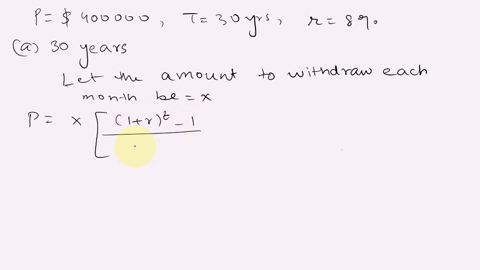 P = $ 400000 , T = 30 yrs, r = 8%.
(a) 30 years
Let the amount to withdraw each
month be = x
P = x [ (1+r)^t - 1